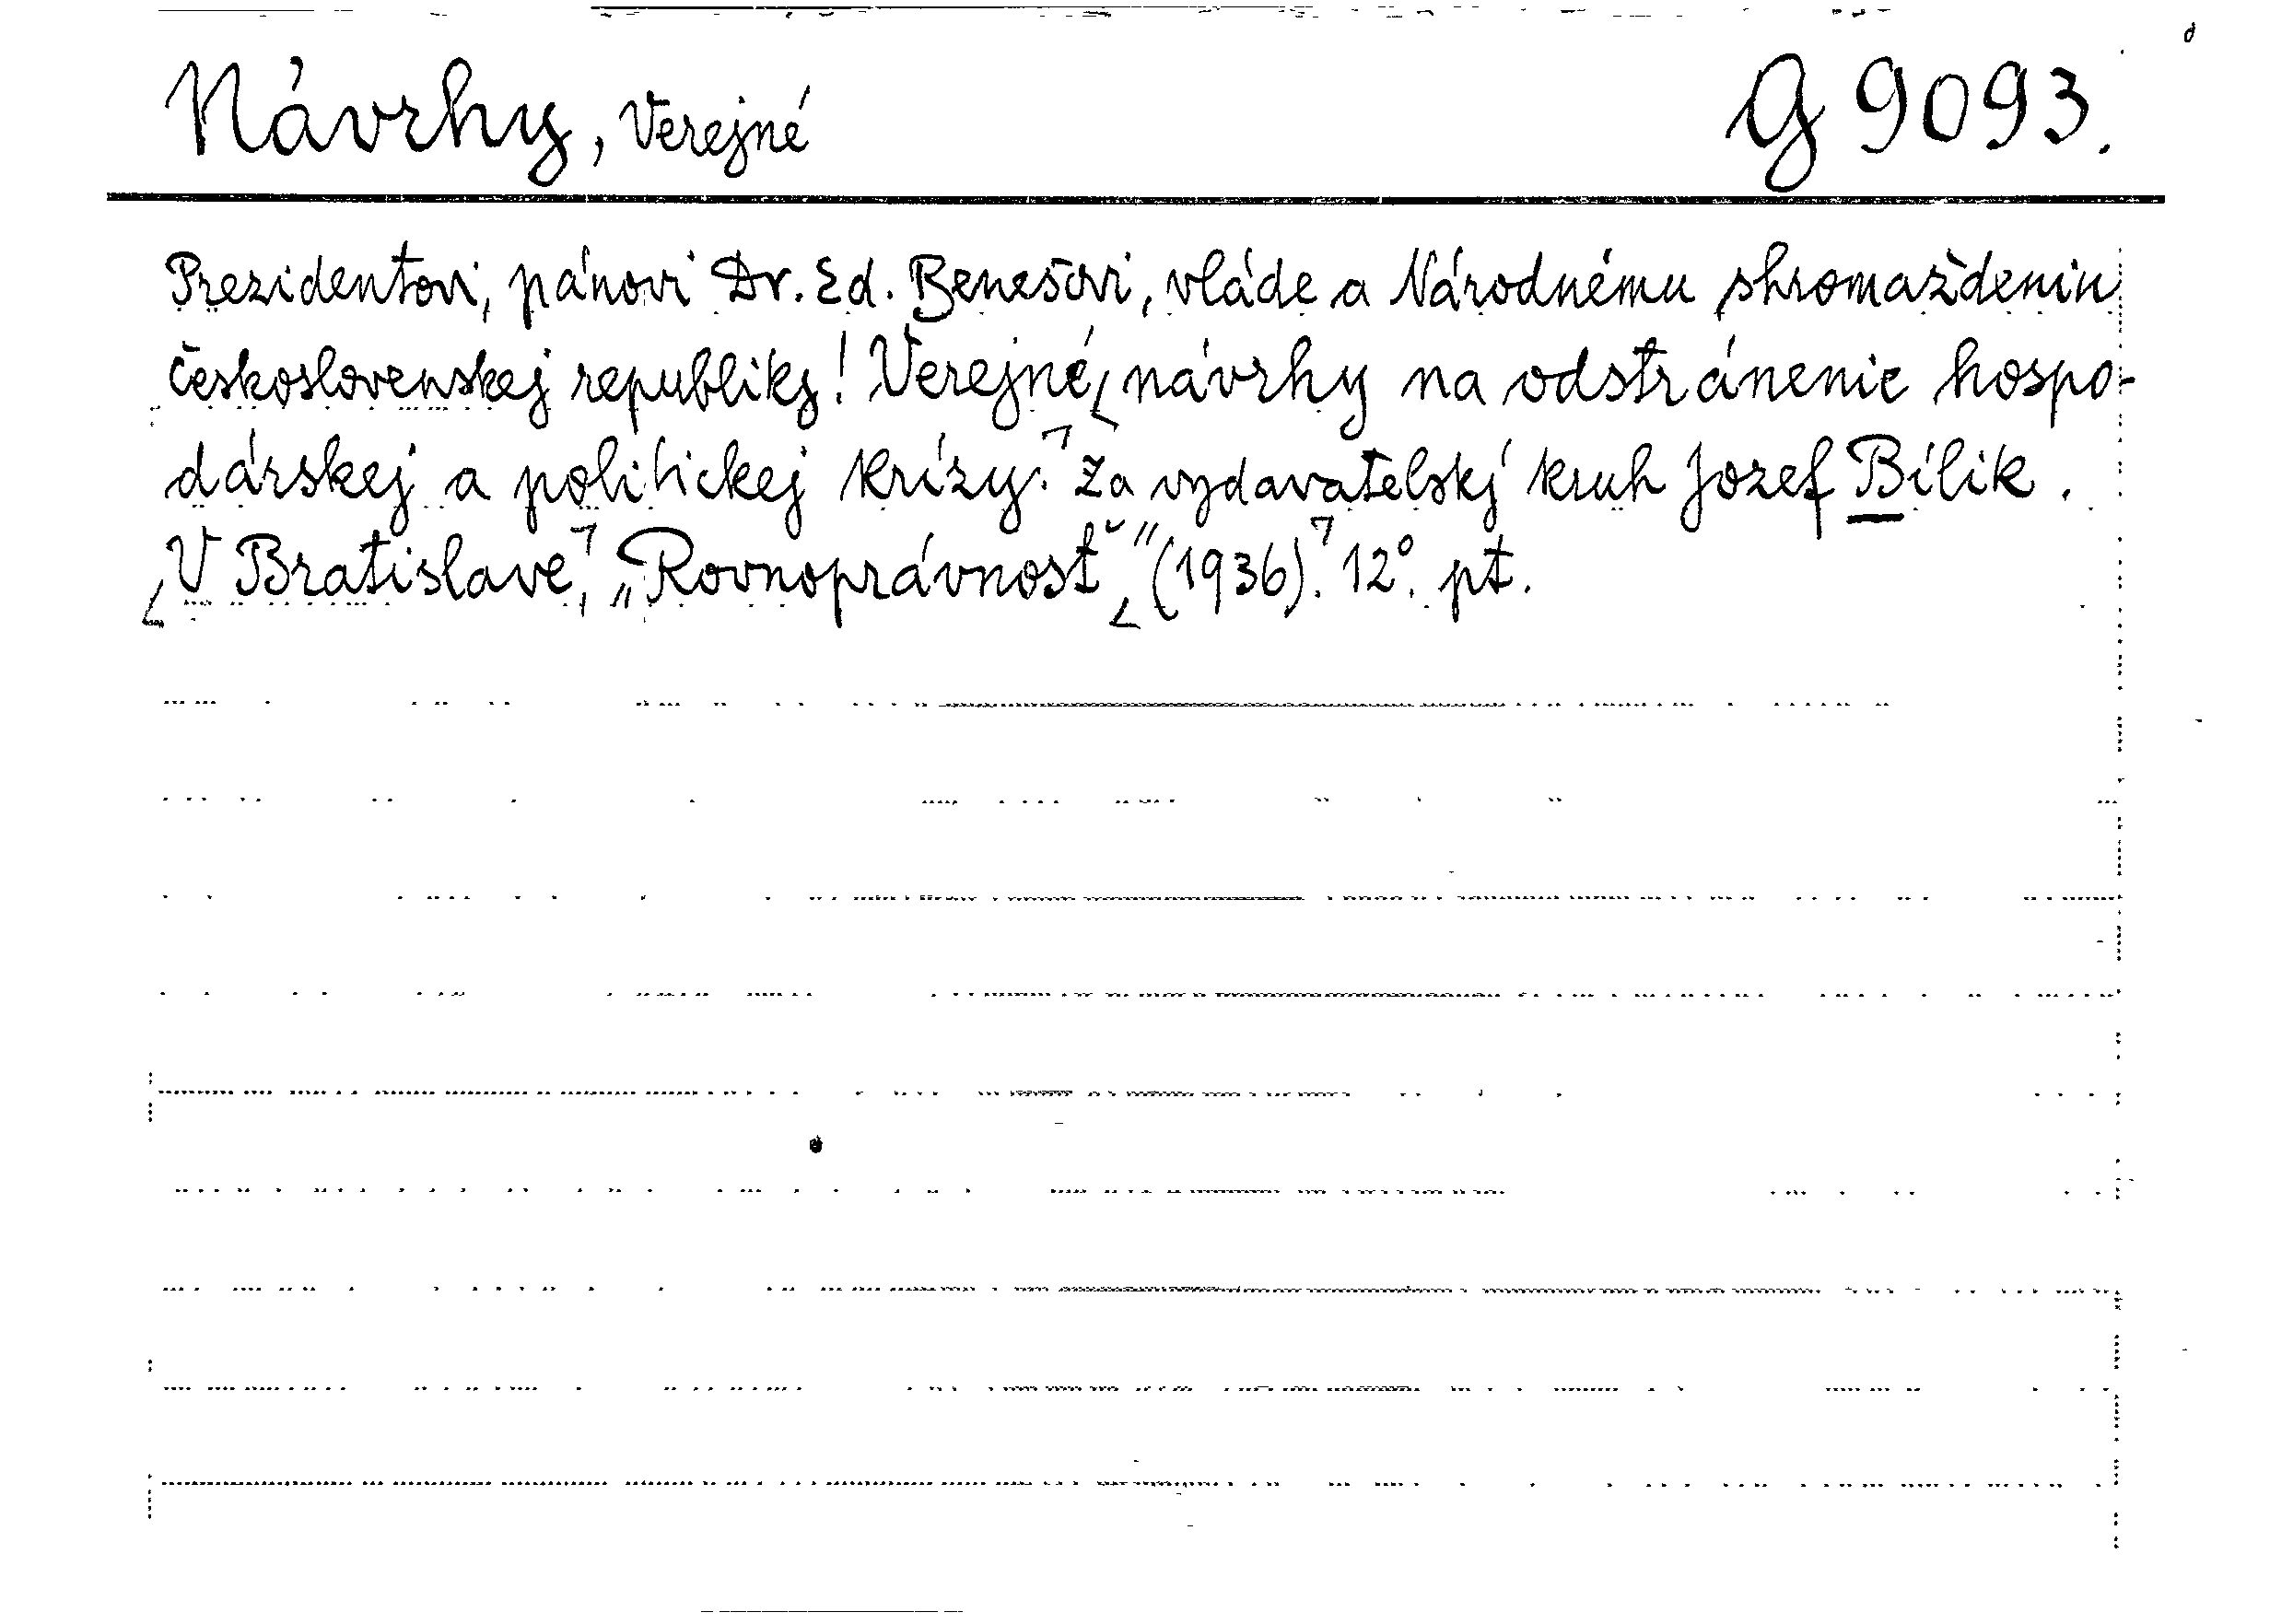 Návrhy, Verejné G 9093.
Prezidentovi, pánovi Dr. Ed. Benešovi, vláde a Národnému shromaždeniu
Československej republiky! Verejné návrhy na odstránenie hospo-
dárskej a politickej krízy. Za vydavatelský kruh Jozef Bílik.
V Bratislave, „Rovnoprávnosť" (1936). 12°. pt.